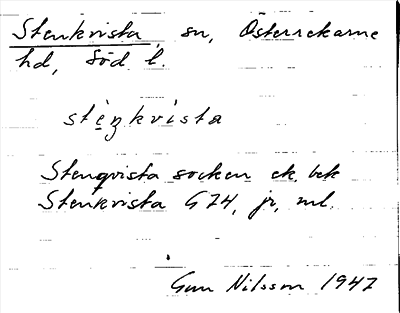 Stenkvista, sn, Österrekarne
hd, Söd l.
stènkvista
Stenqvista socken ek. bek
Stenkvista G74, jr, ml.
Gun Nilsson 1947